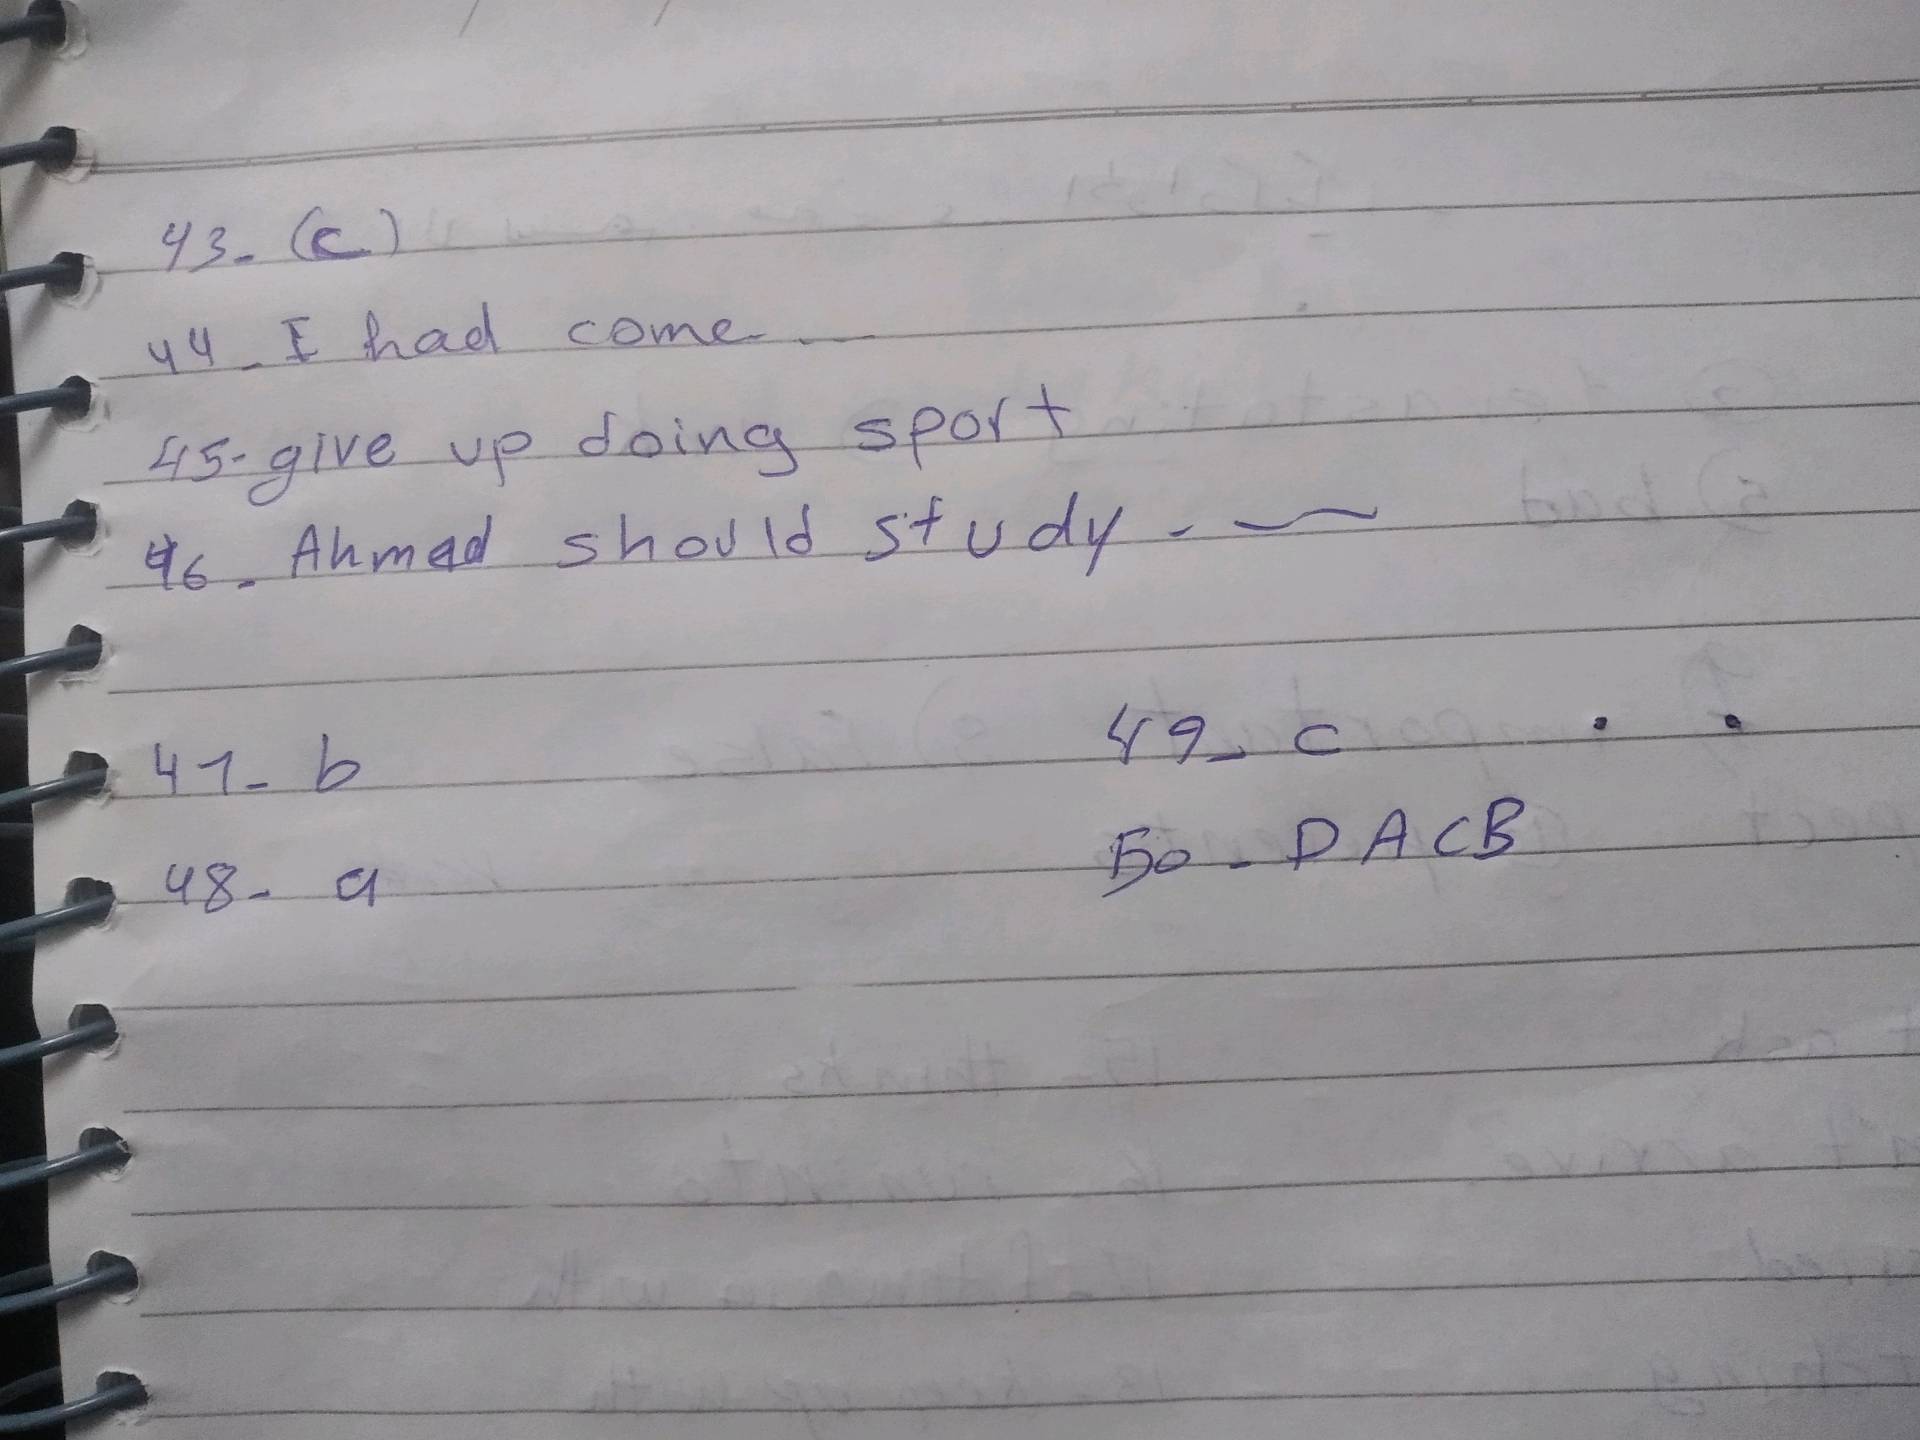 43- (c)
44- I had come ...
45- give up doing sport
46- Ahmad should study -
47- b
48- a
49- c
50- DACB